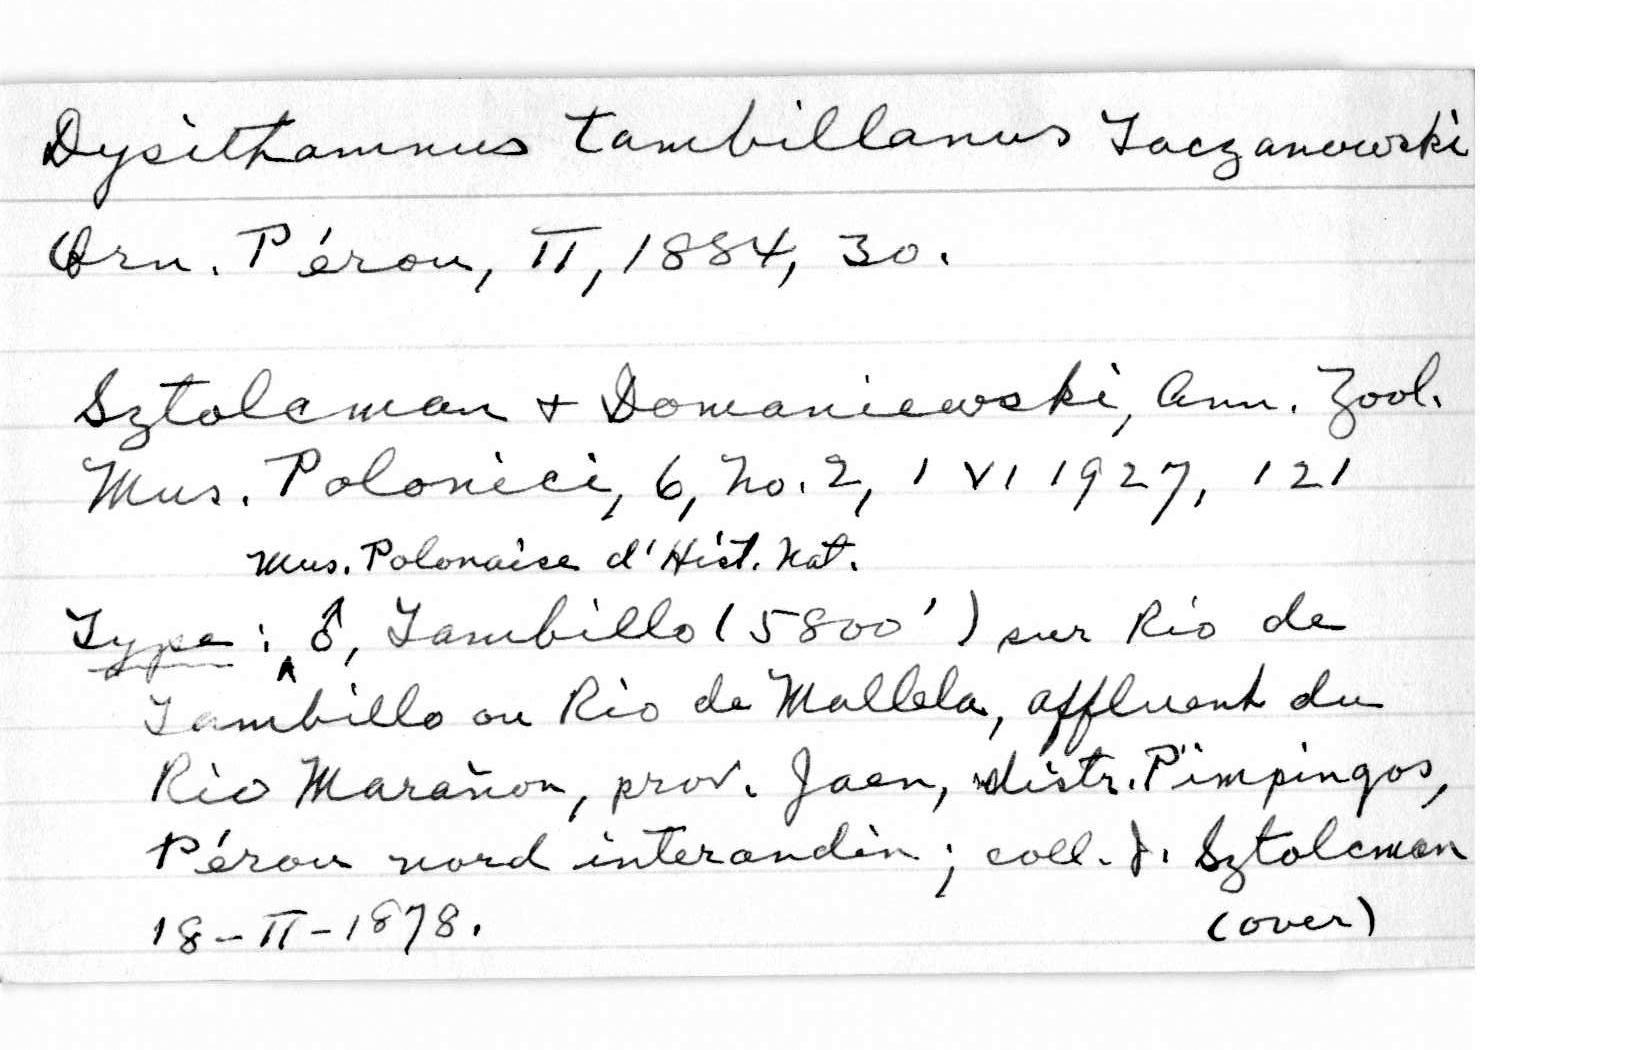 Dysithamnus tambillanus Taczanowski
Orn. Pérou, II, 1884, 30.
Sztolcman + Domaniewski, Ann. Zool.
Mus. Polonici, 6, No. 2, 1 VI 1927, 121
Mus. Polonaise d'Hist. Nat.
Type: ^ ♂, Tambillo (5800') sur Rio de
Tambillo ou Rio de Mallela, affluent du
Rio Marañon, prov. Jaen, distr. Pimpingos,
Pérou nord interandin; coll. J. Sztolcman
18-II-1878. (over)